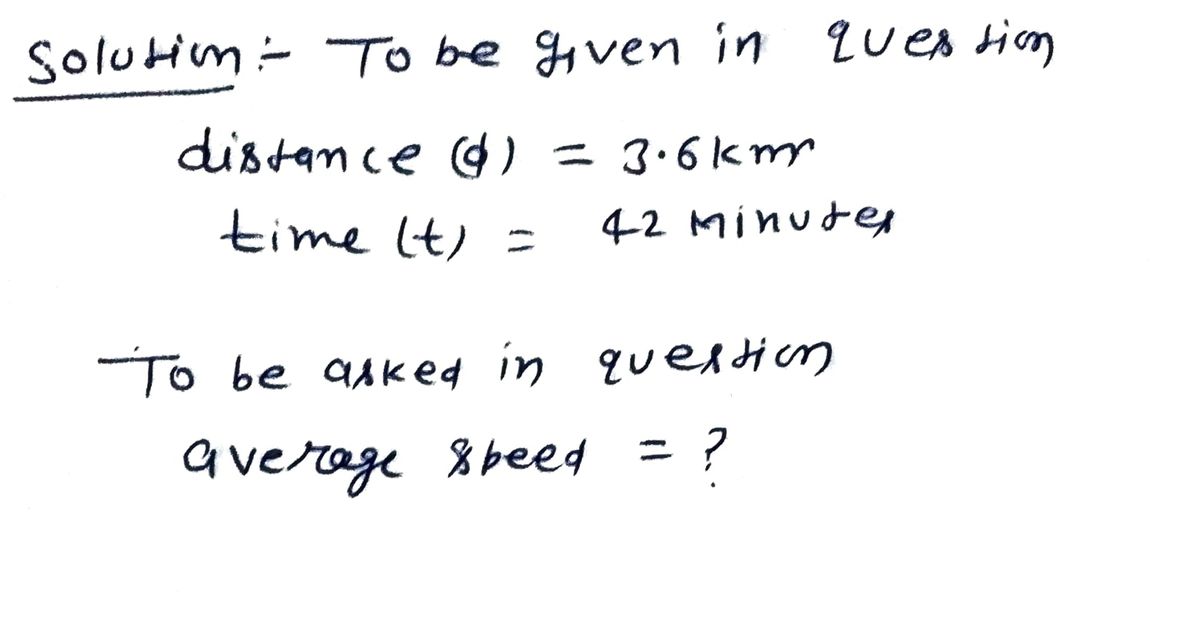 Solution :- To be given in question
distance (d) = 3.6 km
time (t) = 42 Minutes
To be asked in question
average speed = ?